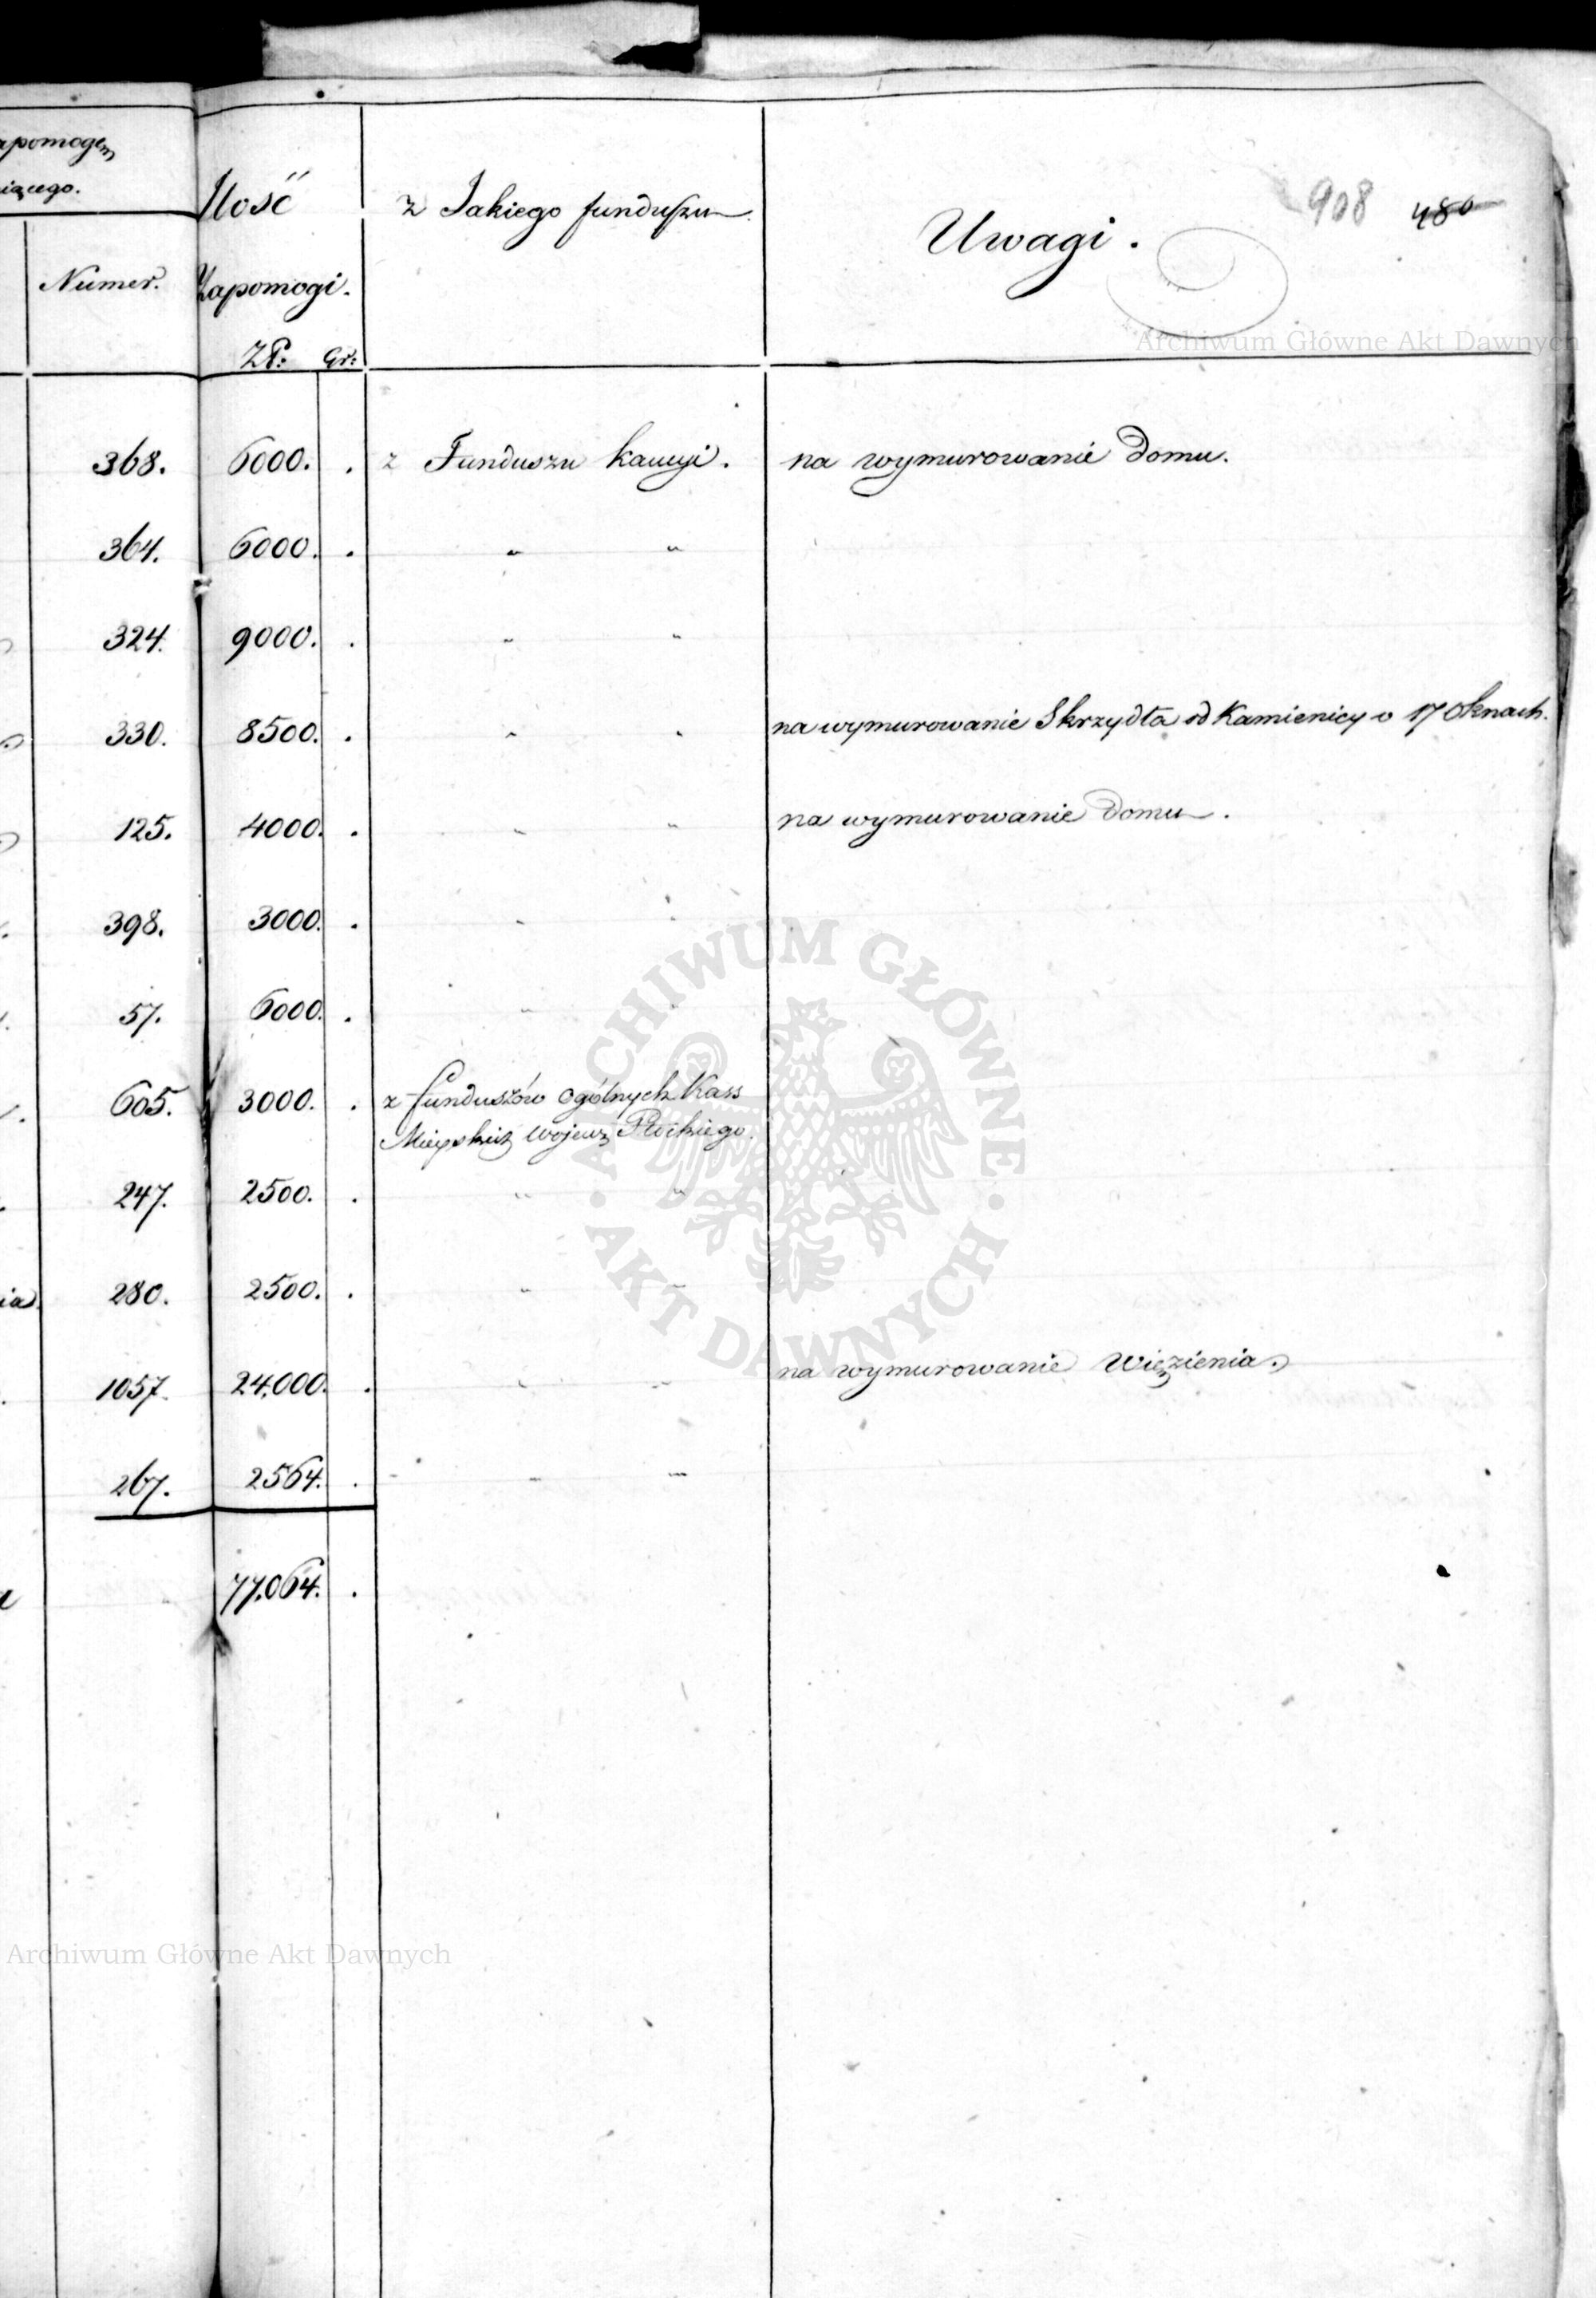 908 480
Ilość
z Jakiego funduszu
Uwagi.
Numer.
Zapomogi.
Złp: Gr:
Archiwum Główne Akt Dawnych
368. 6000. . z Funduszu kaucyi. na wymurowanie Domu.
364. 6000. . " "
324. 9000. . " "
330. 8500. . " " na wymurowanie Skrzydła od Kamienicy o 17 Oknach.
125. 4000. . " " na wymurowanie Domu.
398. 3000. . " "
57. 6000. . " "
605. 3000. . z funduszów ogólnych Kass
Mieyskich Wojew Płockiego.
247. 2500. . " "
280. 2500. . " "
1057. 24,000. . " " na wymurowanie Więzienia.
267. 2564. . " "
77.064. .
ARCHIWUM GŁÓWNE
AKT DAWNYCH
Archiwum Główne Akt Dawnych